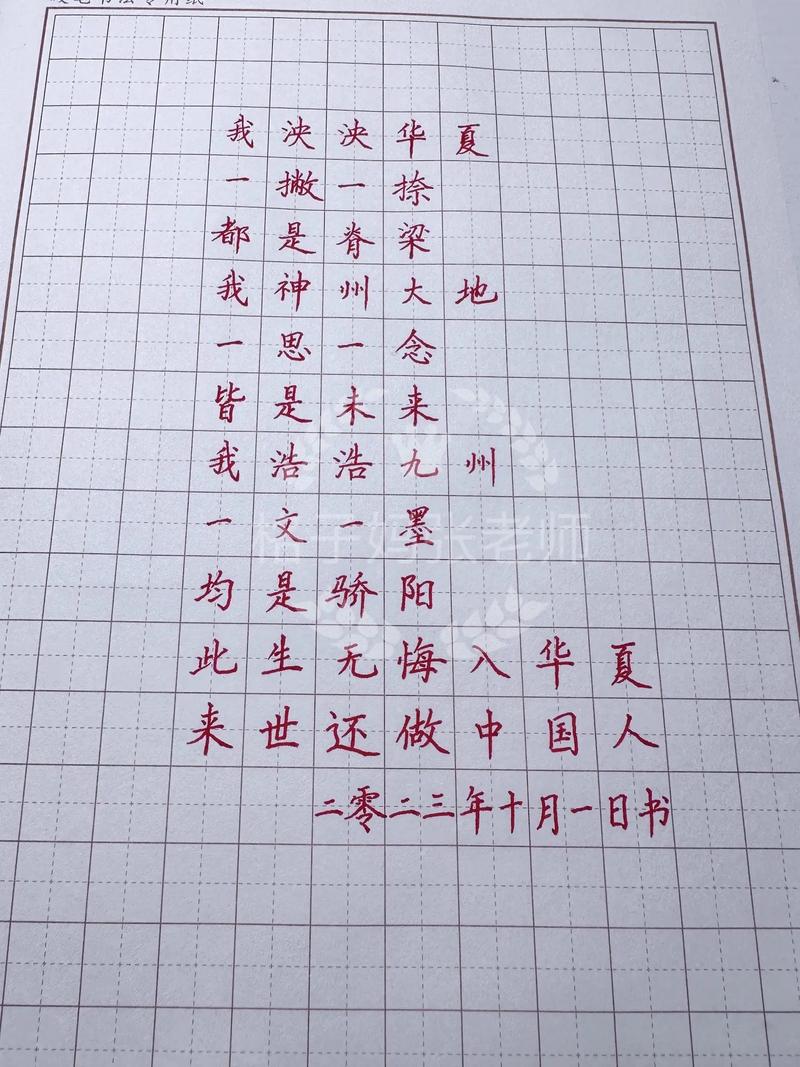 硬笔书法专用纸
我泱泱华夏
一撇一捺
都是脊梁
我神州大地
一思一念
皆是未来
我浩浩九州
一文一墨
均是骄阳
此生无悔入华夏
来世还做中国人
二零二三年十月一日书
张老师